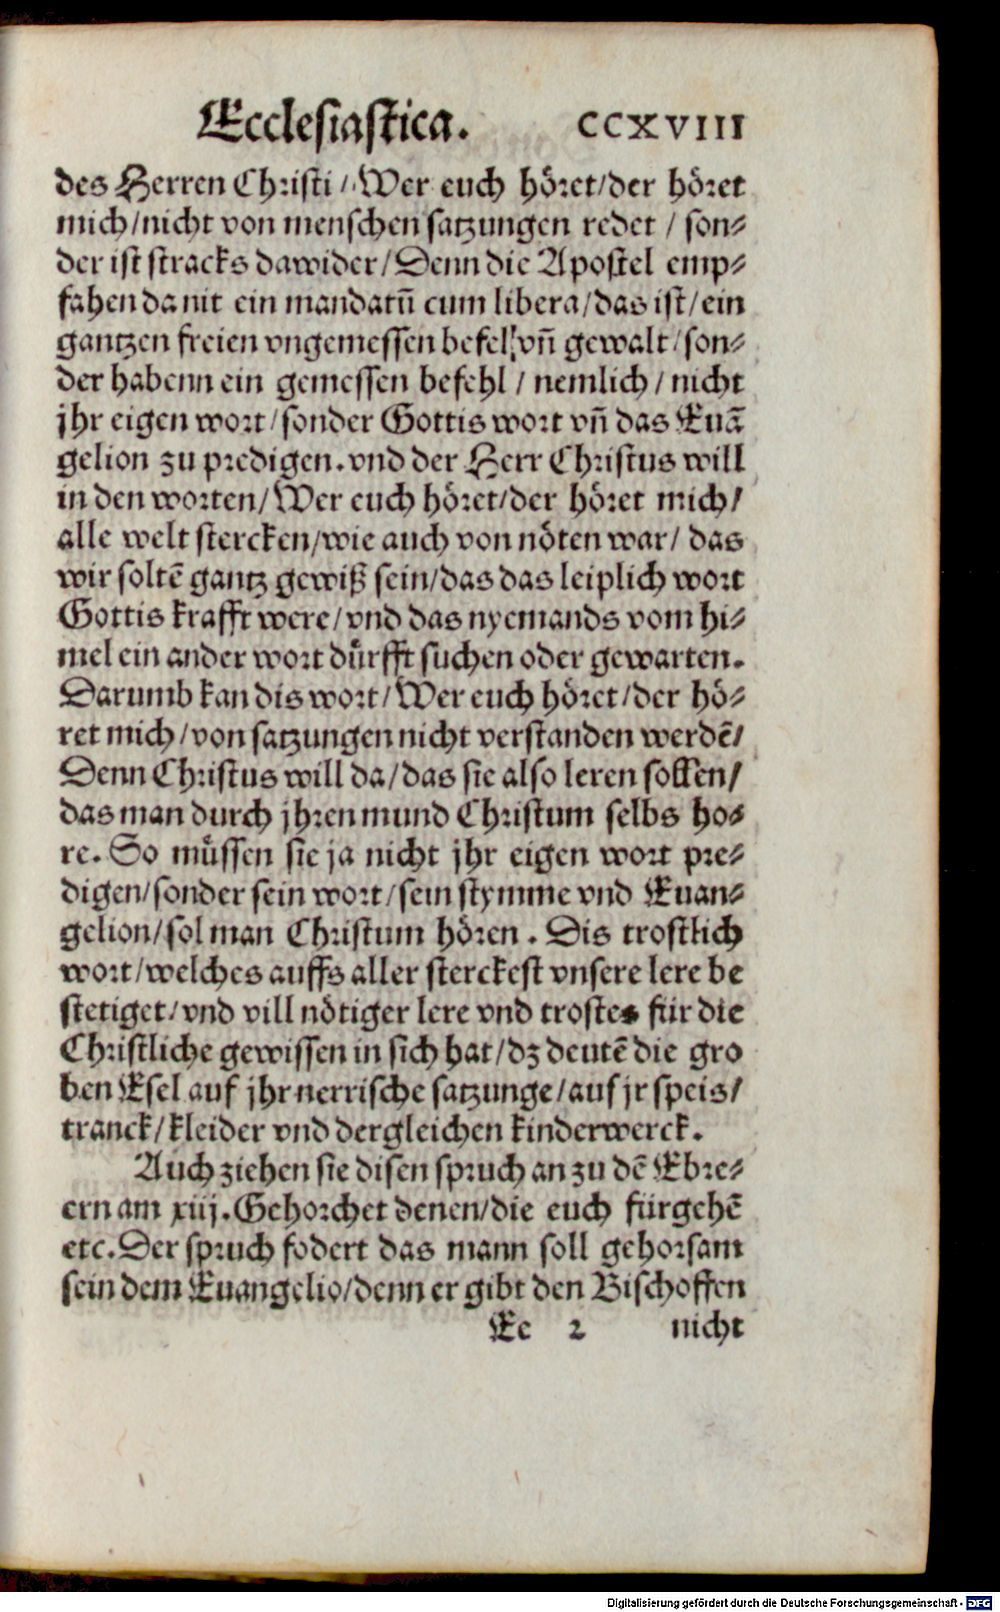 Ecclesiastica. CCXVIII
des Herren Christi / Wer euch höret/der höret
mich/nicht von menschen satzungen redet / son⸗
der ist stracks dawider/Denn die Apostel emp⸗
fahen da nit ein mandatū cum libera/das ist/ein
gantzen freien vngemessen befel/vñ gewalt/son⸗
der habenn ein gemessen befehl / nemlich / nicht
jhr eigen wort/sonder Gottis wort vñ das Euā
gelion zu predigen. vnd der Herr Christus will
in den worten/Wer euch höret/der höret mich/
alle welt stercken/wie auch von nöten war/ das
wir soltē gantz gewiß sein/das das leiplich wort
Gottis krafft were/vnd das nyemands vom hi⸗
mel ein ander wort dürfft suchen oder gewarten.
Darumb kan dis wort/Wer euch höret/der hö⸗
ret mich/von satzungen nicht verstanden werdē/
Denn Christus will da/das sie also leren sollen/
das man durch jhren mund Christum selbs ho⸗
re. So müssen sie ja nicht jhr eigen wort pre⸗
digen/sonder sein wort/sein stymme vnd Euan⸗
gelion/sol man Christum hören. Dis trostlich
wort/welches auffs aller sterckest vnsere lere be
stetiget/vnd vill nötiger lere vnd trostes für die
Christliche gewissen in sich hat/dz deutē die gro
ben Esel auf jhr nerrische satzunge/auf jr speis/
tranck/kleider vnd dergleichen kinderwerck.
Auch ziehen sie disen spruch an zu dē Ebre⸗
ern am xiij. Gehorchet denen/die euch fürgehē
etc. Der spruch fodert das mann soll gehorsam
sein dem Euangelio/denn er gibt den Bischoffen
Ee 2 nicht
Digitalisierung gefördert durch die Deutsche Forschungsgemeinschaft - DFG